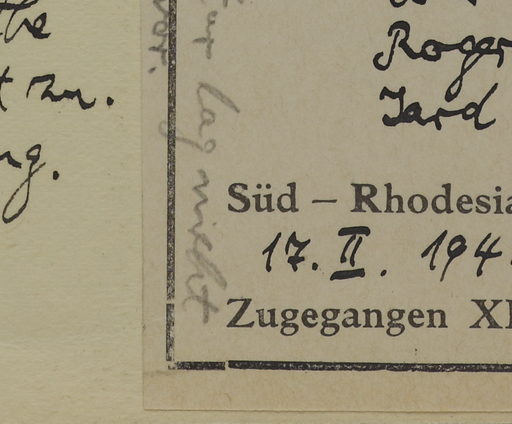 zu.
ng.
vor.
lag nicht
Roger
Jard
Süd – Rhodesia
17. II. 194
Zugegangen XI